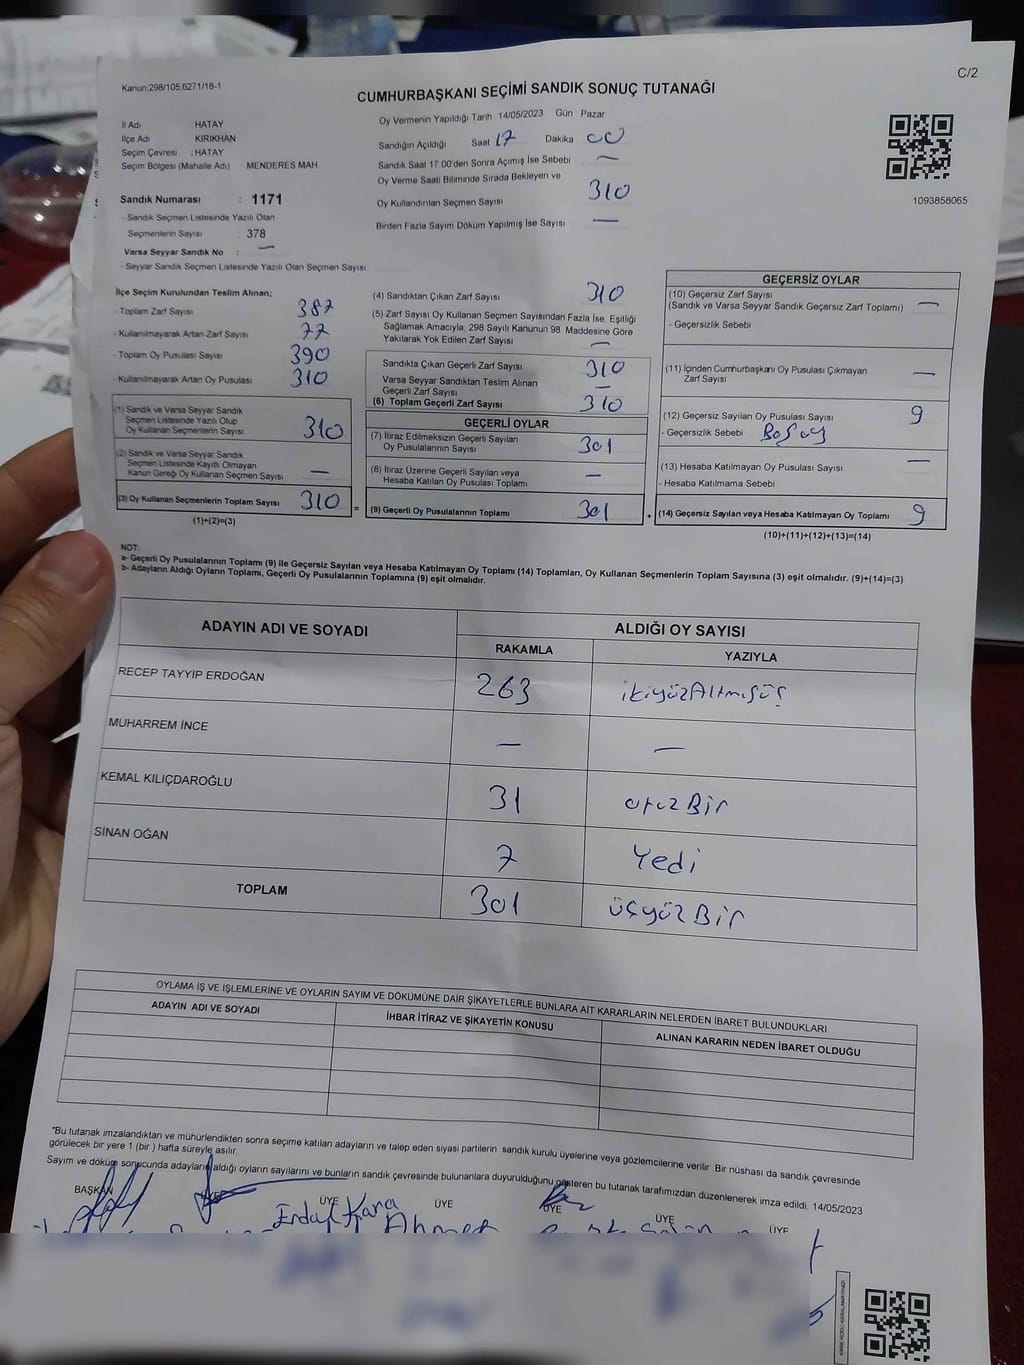 Kanun,298/105,6271/18-1
C/2
CUMHURBAŞKANI SEÇİMİ SANDIK SONUÇ TUTANAĞI
İl Adı HATAY
İlçe Adı KIRIKHAN
Seçim Çevresi : HATAY
Seçim Bölgesi (Mahalle Adı) MENDERES MAH.
Sandık Numarası : 1171
- Sandık Seçmen Listesinde Yazılı Olan
Seçmenlerin Sayısı : 378
Varsa Seyyar Sandık No : —
- Seyyar Sandık Seçmen Listesinde Yazılı Olan Seçmen Sayısı
Oy Vermenin Yapıldığı Tarih 14/05/2023 Gün Pazar
Sandığın Açıldığı Saat 17 Dakika 00
Sandık Saat 17.00'den Sonra Açımış İse Sebebi —
Oy Verme Saati Bitiminde Sırada Bekleyen ve
Oy Kullandırılan Seçmen Sayısı 310
Birden Fazla Sayım Döküm Yapılmış İse Sayısı —
1093858065
İlçe Seçim Kurulundan Teslim Alınan;
- Toplam Zarf Sayısı 387
- Kullanılmayarak Artan Zarf Sayısı 77
- Toplam Oy Pusulası Sayısı 390
- Kullanılmayarak Artan Oy Pusulası 310
(1) Sandık ve Varsa Seyyar Sandık
Seçmen Listesinde Yazılı Olup
Oy Kullanan Seçmenlerin Sayısı 310
(2) Sandık ve Varsa Seyyar Sandık
Seçmen Listesinde Kayıtlı Olmayan
Kanun Gereği Oy Kullanan Seçmen Sayısı —
(3) Oy Kullanan Seçmenlerin Toplam Sayısı 310 =
(1)+(2)=(3)
(4) Sandıktan Çıkan Zarf Sayısı 310
(5) Zarf Sayısı Oy Kullanan Seçmen Sayısından Fazla İse, Eşitliği
Sağlamak Amacıyla, 298 Sayılı Kanunun 98 Maddesine Göre
Yakılarak Yok Edilen Zarf Sayısı —
Sandıkta Çıkan Geçerli Zarf Sayısı 310
Varsa Seyyar Sandıktan Teslim Alınan
Geçerli Zarf Sayısı —
(6) Toplam Geçerli Zarf Sayısı 310
GEÇERLİ OYLAR
(7) İtiraz Edilmeksizin Geçerli Sayılan
Oy Pusulalarının Sayısı 301
(8) İtiraz Üzerine Geçerli Sayılan veya
Hesaba Katılan Oy Pusulası Toplamı —
(9) Geçerli Oy Pusulalarının Toplamı 301 +
GEÇERSİZ OYLAR
(10) Geçersiz Zarf Sayısı
(Sandık ve Varsa Seyyar Sandık Geçersiz Zarf Toplamı) —
- Geçersizlik Sebebi
(11) İçinden Cumhurbaşkanı Oy Pusulası Çıkmayan
Zarf Sayısı —
(12) Geçersiz Sayılan Oy Pusulası Sayısı 9
- Geçersizlik Sebebi Boş oy
(13) Hesaba Katılmayan Oy Pusulası Sayısı —
- Hesaba Katılmama Sebebi
(14) Geçersiz Sayılan veya Hesaba Katılmayan Oy Toplamı 9
(10)+(11)+(12)+(13)=(14)
NOT:
a- Geçerli Oy Pusulalarının Toplamı (9) ile Geçersiz Sayılan veya Hesaba Katılmayan Oy Toplamı (14) Toplamları, Oy Kullanan Seçmenlerin Toplam Sayısına (3) eşit olmalıdır. (9)+(14)=(3)
b- Adayların Aldığı Oyların Toplamı, Geçerli Oy Pusulalarının Toplamına (9) eşit olmalıdır.
ADAYIN ADI VE SOYADI ALDIĞI OY SAYISI
RAKAMLA YAZIYLA
RECEP TAYYİP ERDOĞAN 263 ikiyüzAltmışüç
MUHARREM İNCE — —
KEMAL KILIÇDAROĞLU 31 otuzBir
SİNAN OĞAN 7 Yedi
TOPLAM 301 üçyüzBir
OYLAMA İŞ VE İŞLEMLERİNE VE OYLARIN SAYIM VE DÖKÜMÜNE DAİR ŞİKAYETLERLE BUNLARA AİT KARARLARIN NELERDEN İBARET BULUNDUKLARI
ADAYIN ADI VE SOYADI İHBAR İTİRAZ VE ŞİKAYETİN KONUSU ALINAN KARARIN NEDEN İBARET OLDUĞU
"Bu tutanak imzalandıktan ve mühürlendikten sonra seçime katılan adayların ve talep eden siyasi partilerin sandık kurulu üyelerine veya gözlemcilerine verilir. Bir nüshası da sandık çevresinde
görülecek bir yere 1 (bir) hafta süreyle asılır.
Sayım ve döküm sonucunda adayların aldığı oyların sayılarını ve bunların sandık çevresinde bulunanlara duyurulduğunu gösteren bu tutanak tarafımızdan düzenlenerek imza edildi. 14/05/2023
BAŞKAN ÜYE ÜYE ÜYE ÜYE ÜYE ÜYE
Kara
Ahmet